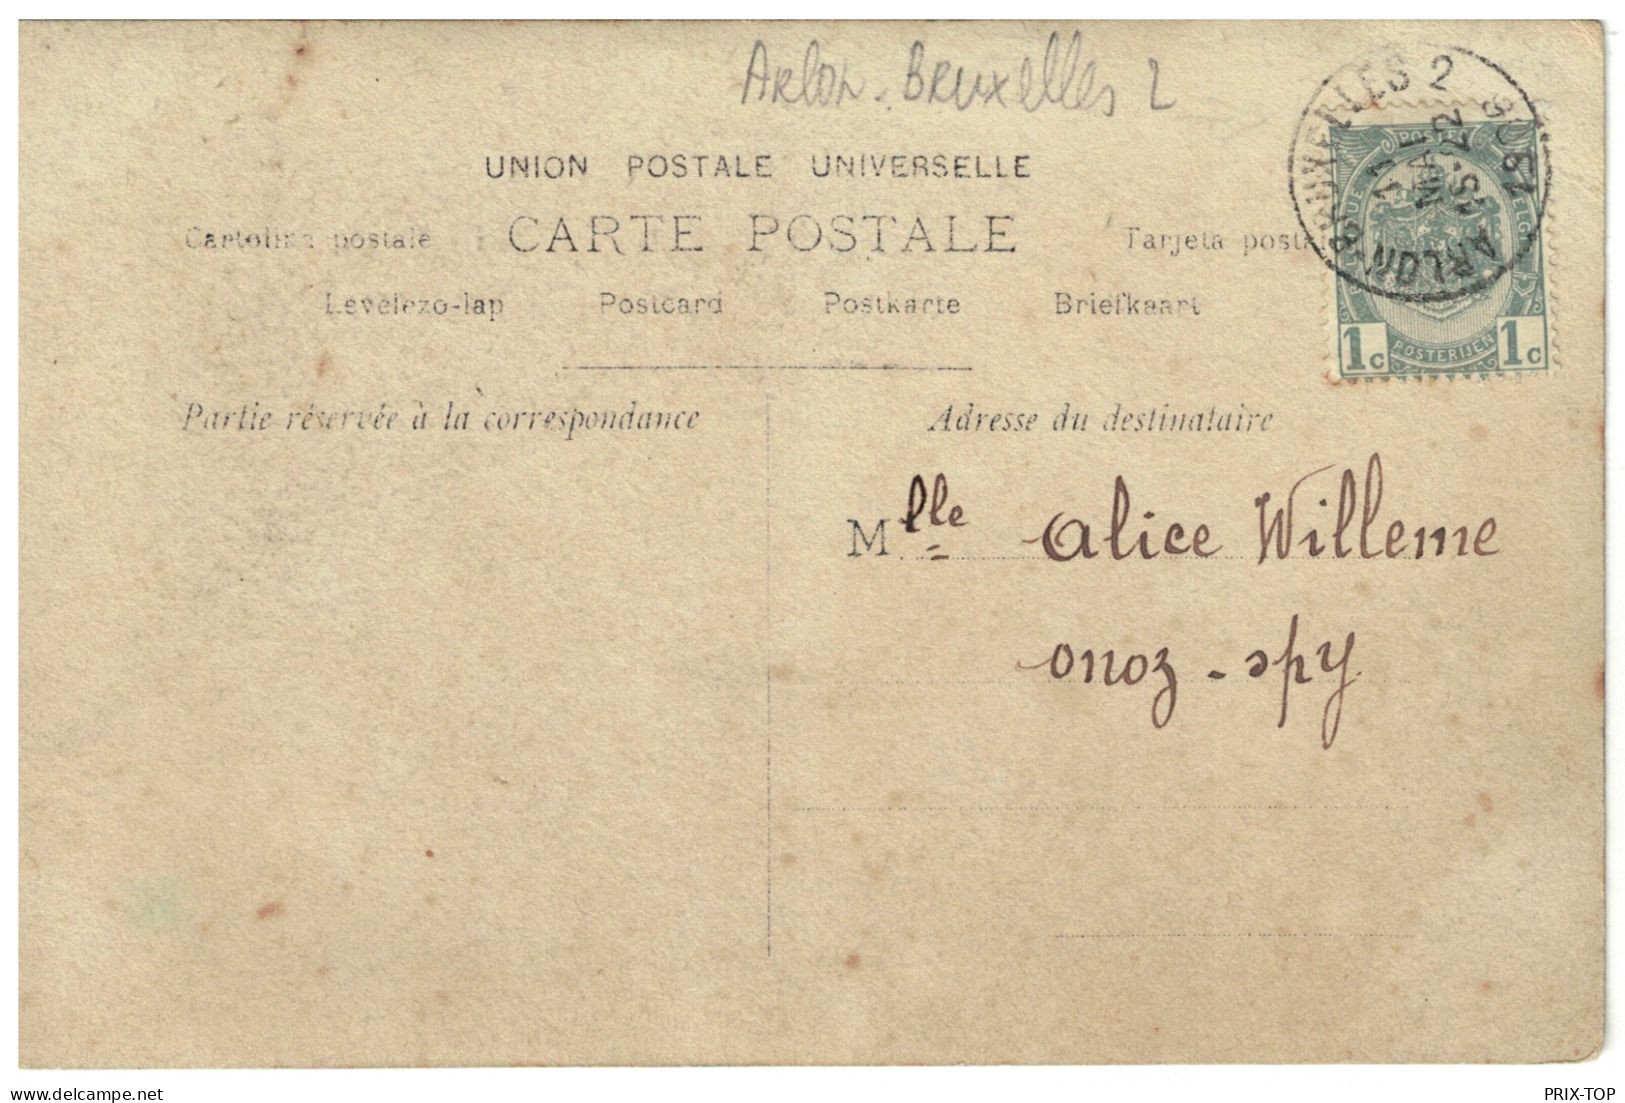 Arlon - Bruxelles 2
UNION POSTALE UNIVERSELLE
Cartolina postale CARTE POSTALE Tarjeta postal
Levelezo-lap Postcard Postkarte Briefkaart
Partie réservée à la correspondance
Adresse du destinataire
Mlle Alice Willeme
Onoz - Spy
BRUXELLES 2
MAI
ARLON
POSTES
POSTERIJEN
1c 1c
PRIX-TOP